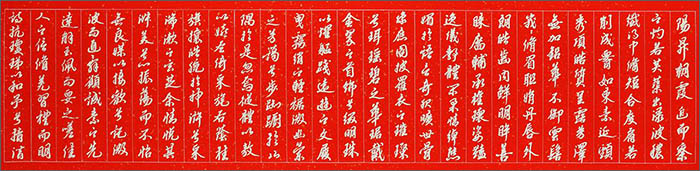 陽昇朝霞迫而察
之灼若芙蕖出渌波穠
纖得中脩短合度肩若
削成腰如束素延頸
秀項皓質呈露芳澤
無加鉛華弗御雲髻
峨峨脩眉聯娟丹唇外
朗皓齒內鮮明眸善
睞靨輔承權瓌姿豔
逸儀靜體閑柔情綽態
媚於語言奇服曠世骨
像應圖披羅衣之璀璨
兮珥瑤碧之華琚戴
金翠之首飾綴明珠
以耀軀踐遠遊之文履
曳霧綃之輕裾微幽蘭
之芳藹兮步踟躕於山
隅於是忽焉縱體以遨
以嬉左倚采旄右蔭桂
旗攘皓腕於神滸兮采
湍瀨之玄芝余情悅其
淑美兮心振蕩而不怡
無良媒以接歡兮託微
波而通辭願誠素之先
達解玉佩而要之嗟佳
人之信脩羌習禮而明
詩抗瓊珶以和予兮指潛